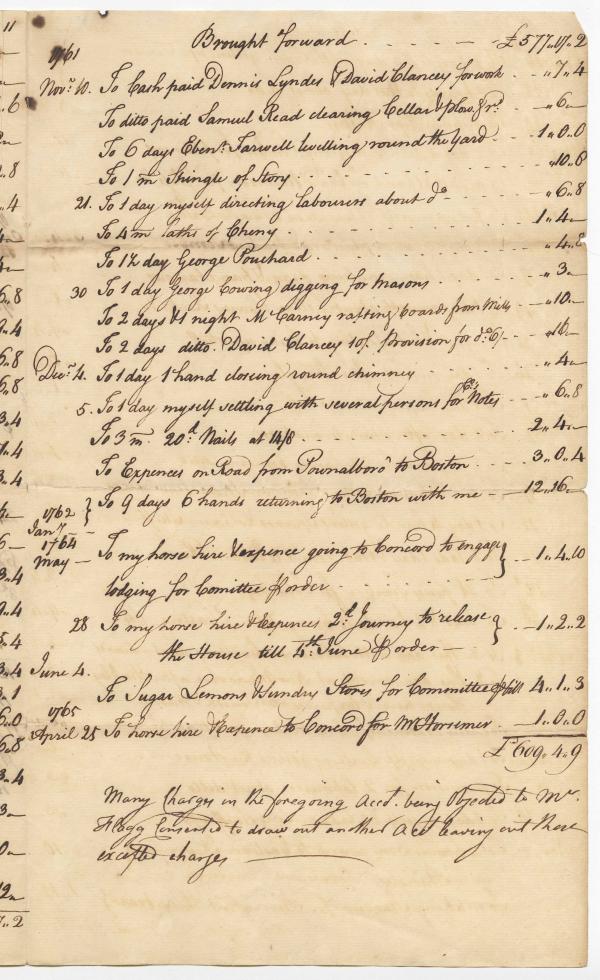 Brought forward . . . . - - £577„17„2
1761
Novr. 10. To Cash paid Dennis Lyndes & David Clancey for work . - „7„4
To ditto paid Samuel Read clearing Cellar & plow. &rs. - - „6„—
To 6 days Ebenr. Farwell levelling round the Yard - - 1„0„0
To 1 m Shingle of Story . . . . „10„8
21. To 1 day myself directing labourers about do . - - „6„8
To 4 m laths of Cheny . . . 1„4„—
To 12 day George Pouchard . . . - „4„8
30 To 1 day George Cowing digging for Masons . . - „3„—
To 2 days & 1 night McCarney rafting boards from Mills - „10„—
To 2 days ditto. David Clancey 10/. Provision for do. 6/ - „16„—
Decr. 4. To 1 day 1 hand closing round chimney . . . - „4„—
5. To 1 day myself settling with several persons for Notes - „6„8
To 3 m. 20d. Nails at 14/8 . . . . 2„4„—
To Expences on Road from Pownalboro' to Boston . . . 3„0„4
1762
Jan 7 — } To 9 days 6 hands returning to Boston with me - 12„16„—
1764
May — To my horse hire & expence going to Concord to engage } - 1„4„10
lodging for Comittee # order - . . .
28 To my horse hire & Expences 2d. Journey to release } . - 1„2„2
the House till 4th: June # order —
June 4.
To Sugar Lemons & Sundry Stores for Committee # bill 4„1„3
1765
April 25 To horse hire & Expence to Concord for Mr Horsemer . - 1„0„0
£609„4„9
Many Charges in the foregoing Acct. being Objected to Mr.
Flagg Consented to draw out another Acct leaving out those
excepted charges —